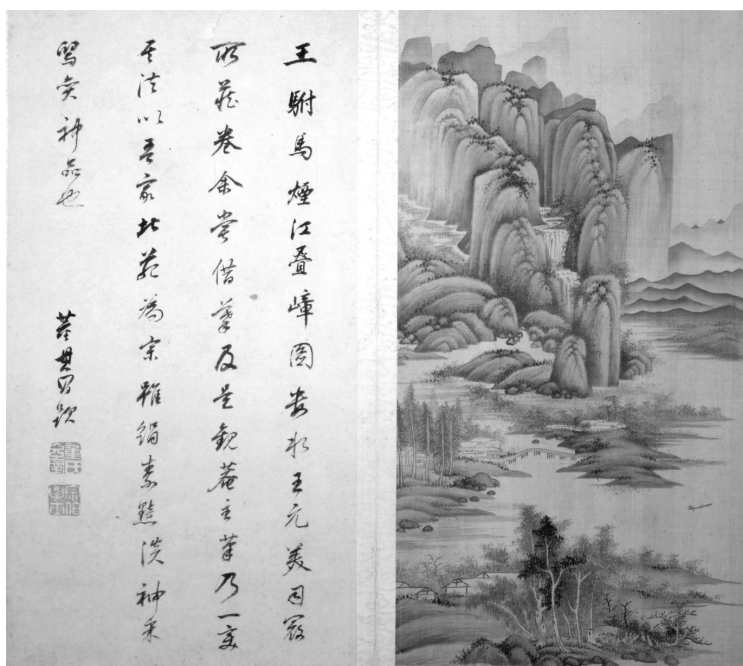 王駙馬煙江叠嶂圖婁水王元美司寇
所藏卷余嘗借摹及是觀菴主筆乃一變
其法以吾家北苑為宗雖絹素黯淡神采
奕神品也
董其昌題